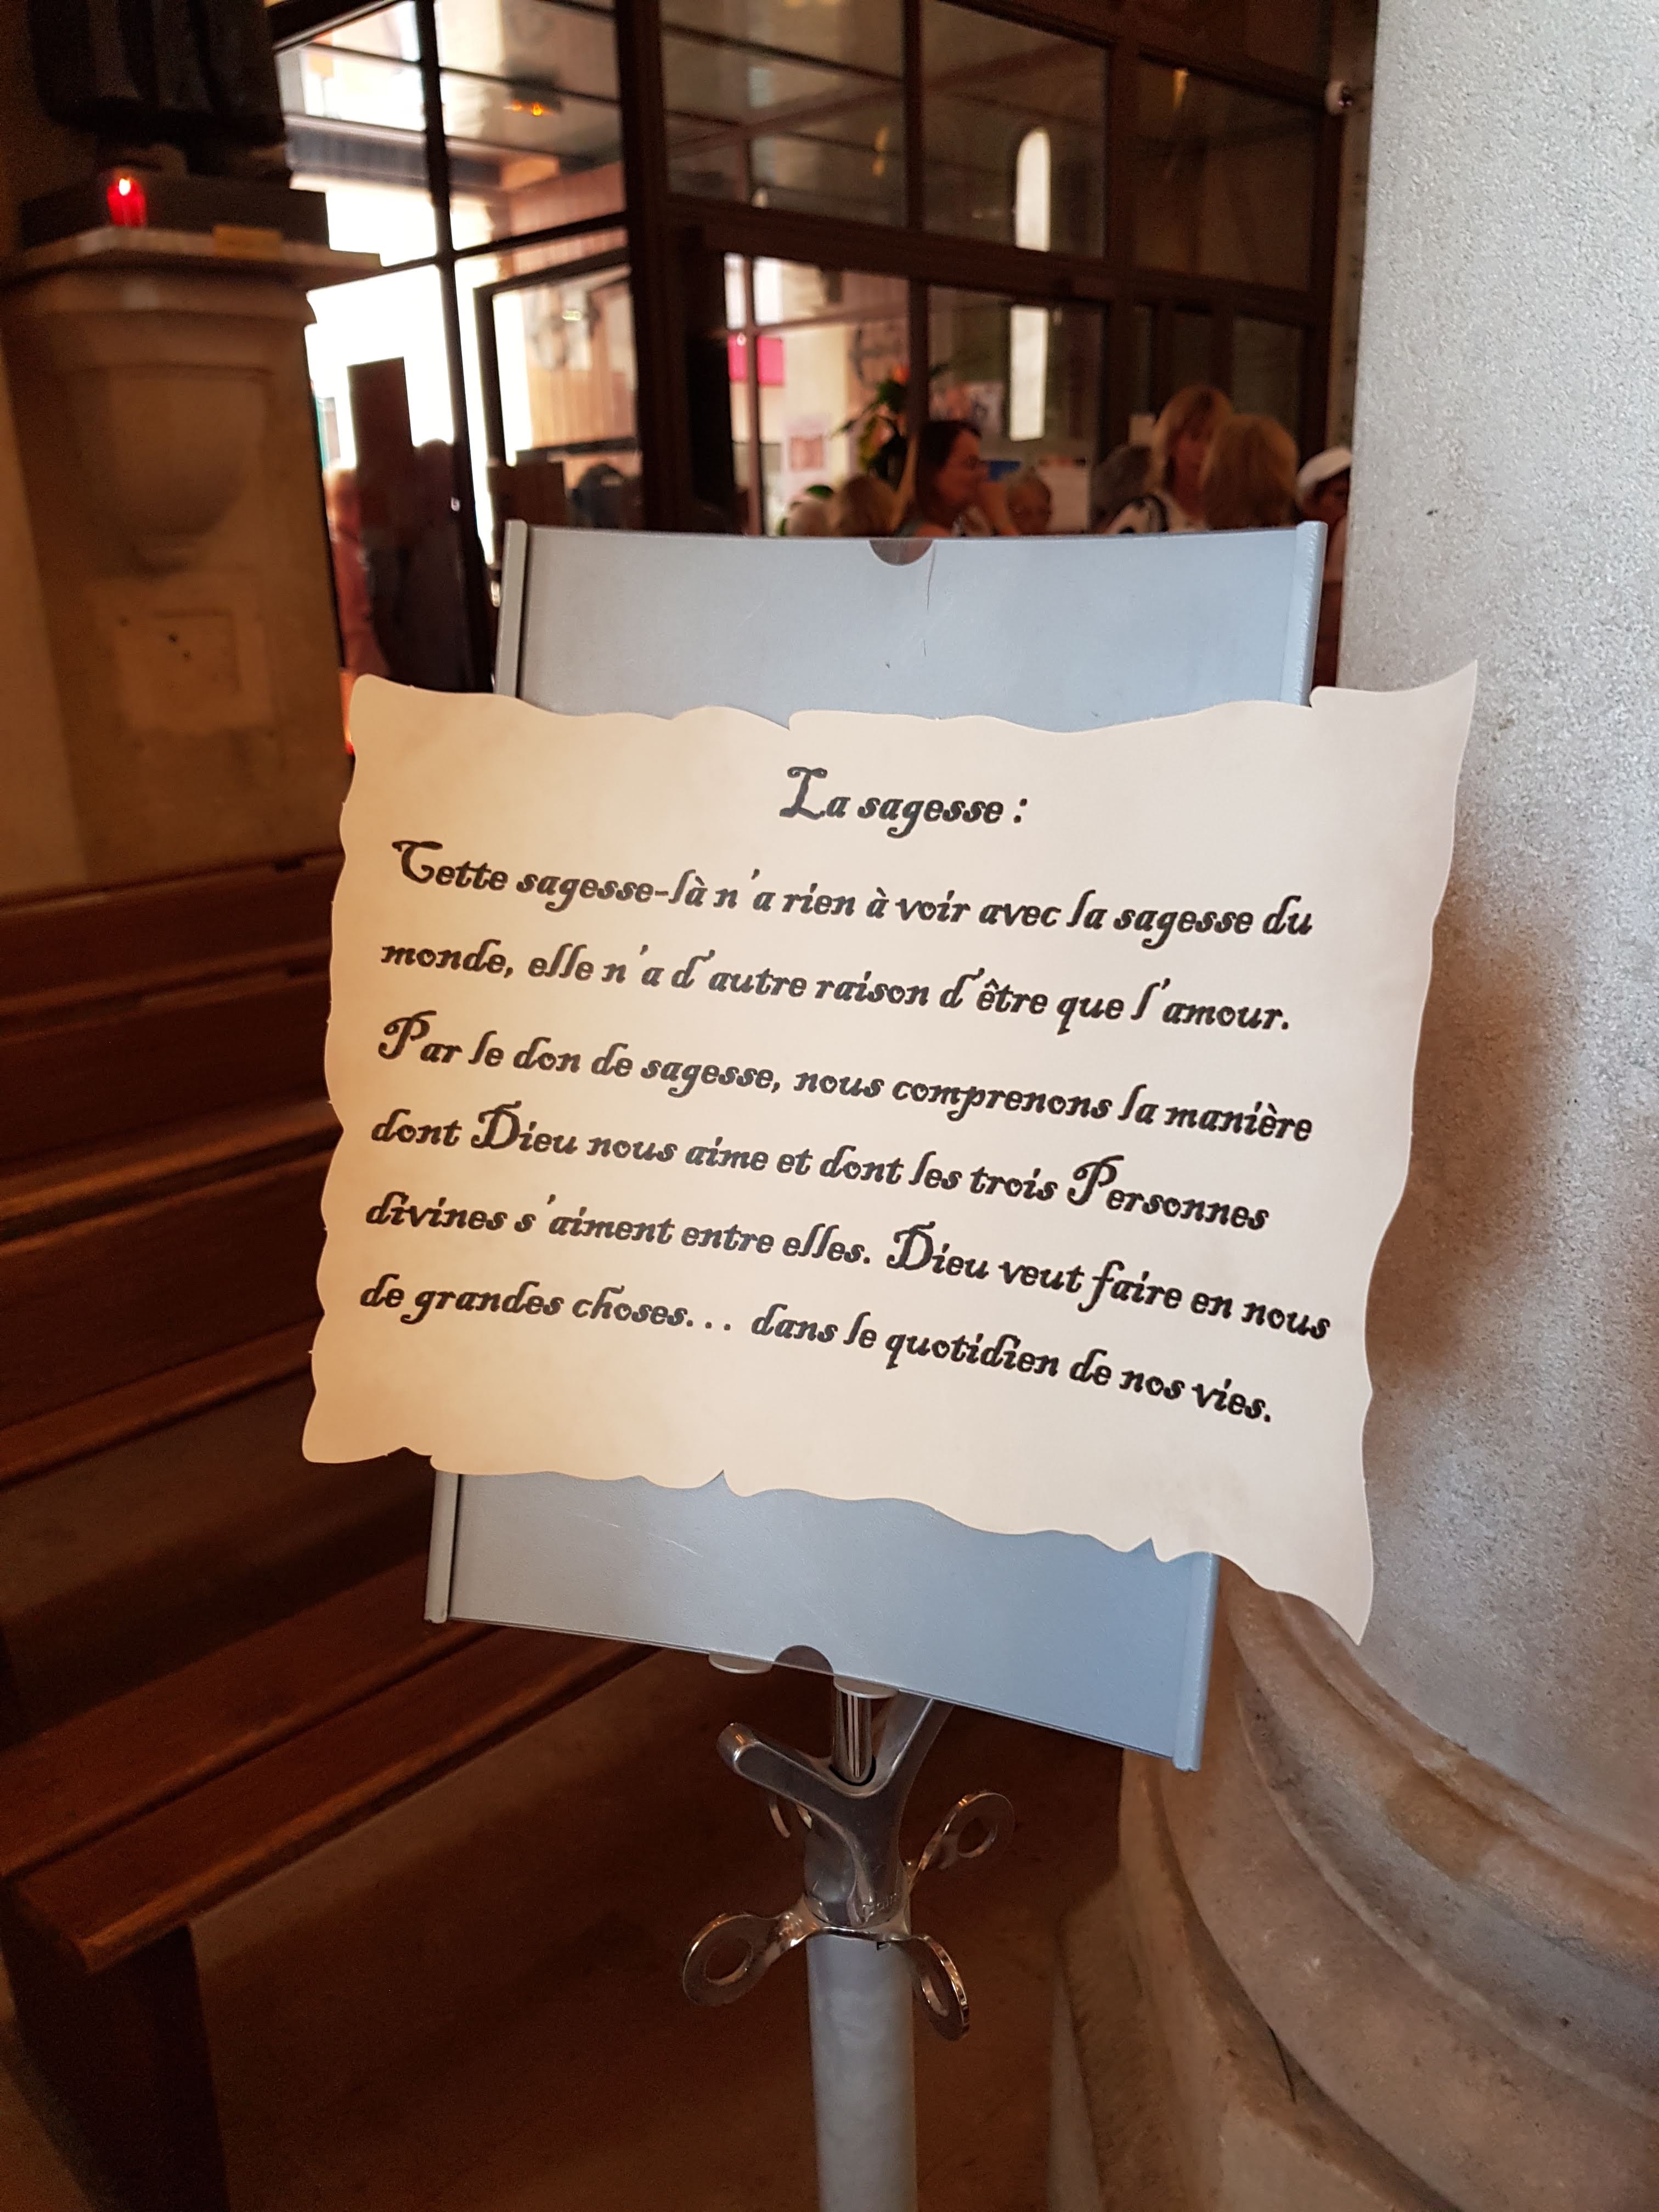 La sagesse :
Cette sagesse-là n'a rien à voir avec la sagesse du
monde, elle n'a d'autre raison d'être que l'amour.
Par le don de sagesse, nous comprenons la manière
dont Dieu nous aime et dont les trois Personnes
divines s'aiment entre elles. Dieu veut faire en nous
de grandes choses... dans le quotidien de nos vies.